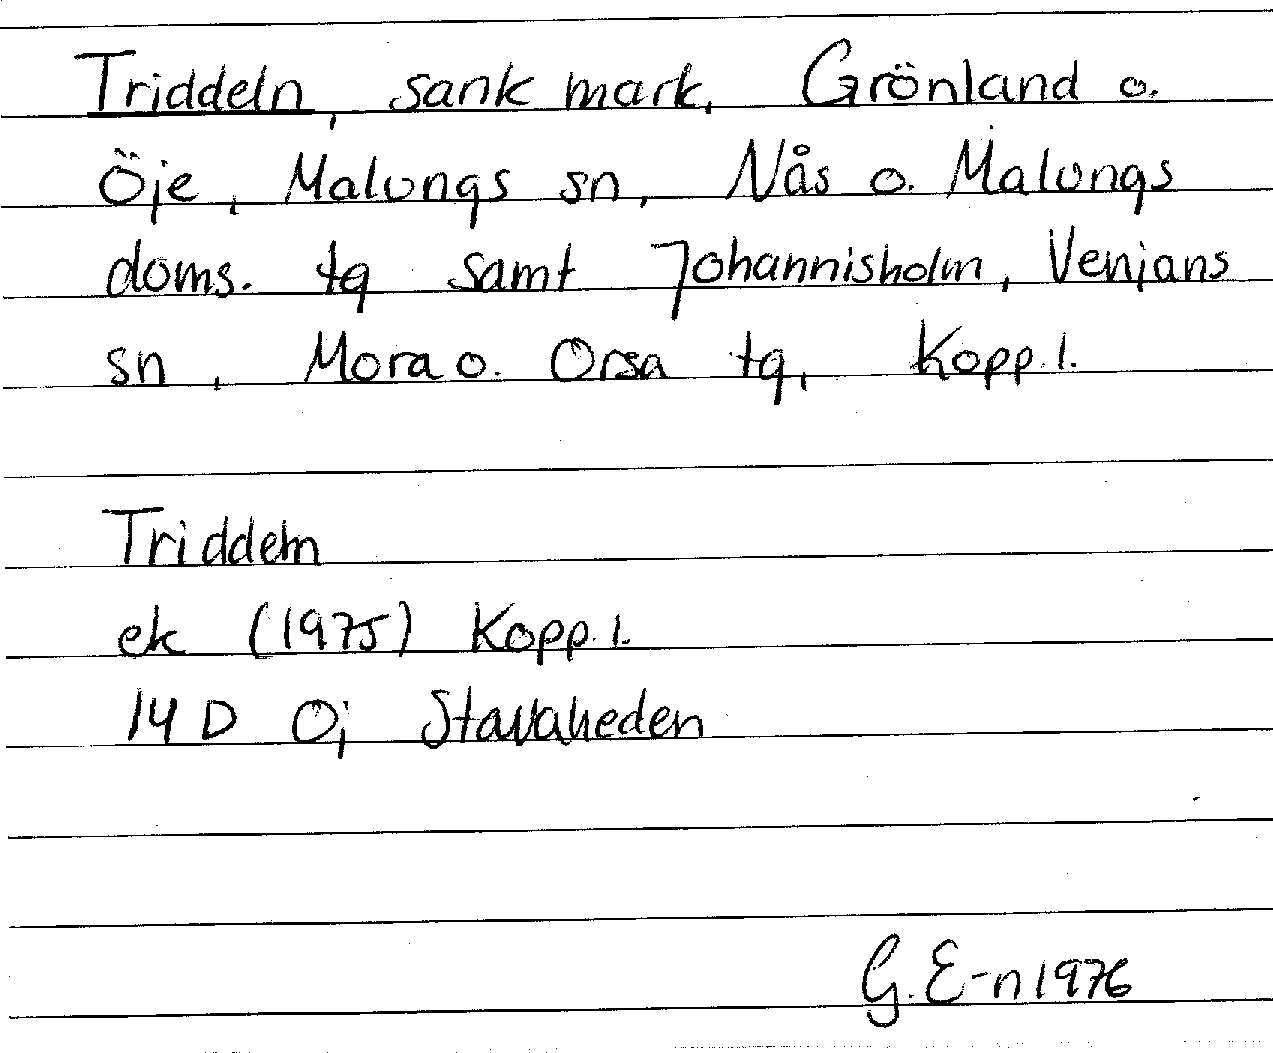 Triddeln, sank mark, Grönland o.
Öje, Malungs sn, Nås o. Malungs
doms. tg samt Johannisholm, Venjans
sn, Mora o. Orsa tg, Kopp. l.
Triddeln
ek (1975) Kopp. l.
14 D 0j Stavaheden
G. E-n 1976